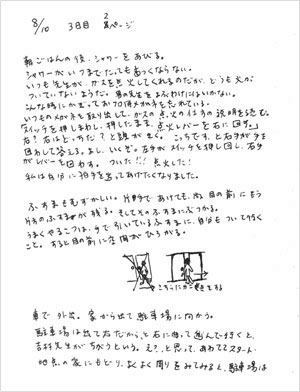 8/10　3日目　2ページ
朝ごはんの後、シャワーをあびる。
シャワーがいつまでたってもあつくならない。
いつも先生が、ガスを点火してくれるのだが、どうも火が
ついていないようだ。男の先生をよぶわけにはいかない。
こんな時にかぎって お手伝い
いつものメガネを取り出して、ガスの点火のイチの説明を読む。
スイッチを押しまわし、押したまま、点火レバーを右に回す。
右?右はどっち?と誰かがきく。こっちです、と右手がダイを
回わして答える。よし、いくぞ。左手がスイッチを押し回し、右手
がレバーを回わす。ついた!!点火した!
私は自分に拍手を言ってあげたくなりました。
ふすまもむずかしい。片手であけても、尚 目の前にもう
片方のふすまが残る。そしてそのふすまにぶつかる。
うまくやるこつは、
こと。すると目の前に空間がひろがる。
車で外出。家から出て駐車場に向かう。
駐車場は出て右だから、と右に曲って進んで行くと、
吉村先生がちがうという。え?、と思って、あわててスタート
地点の家にもどり、よくよく周りをみてみると、駐車場は